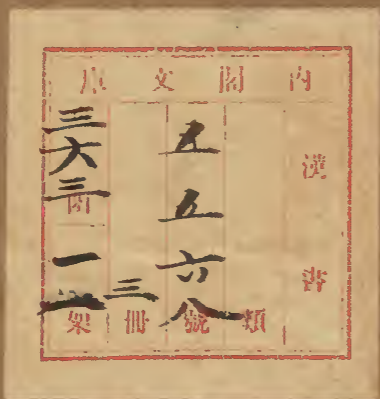 内閣文庫
漢書
類
五五六八號
三冊
三六三函
一
架